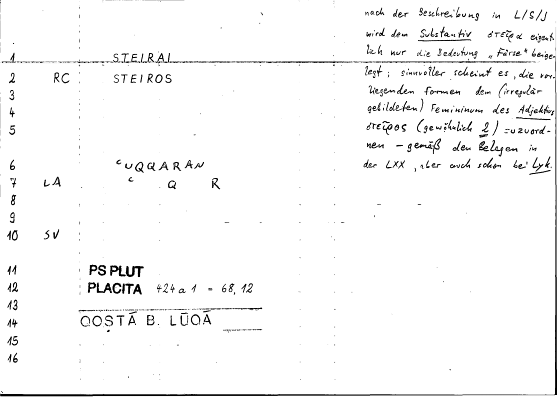 nach der Beschreibung in L/S/J
wird dem Substantiv στεῖρα eigent-
lich nur die Bedeutung „Färse“ beige-
1 STEIRAI
legt; sinnvoller scheint es, die vor-
2 RC STEIROS
liegenden Formen dem (irregulär
3
gebildeten) Femininum des Adjektivs
4
στεῖρος (gewöhnlich 2) zuzuord-
5
nen – gemäß den Belegen in
6 ʿUQQARAN
der LXX, aber auch schon bei Lyk.
7 LA ʿ Q R
8
9
10 SV
11 PS PLUT
12 PLACITA 424 a 1 = 68,12
13
14 QOSṬĀ B. LŪQĀ
15
16